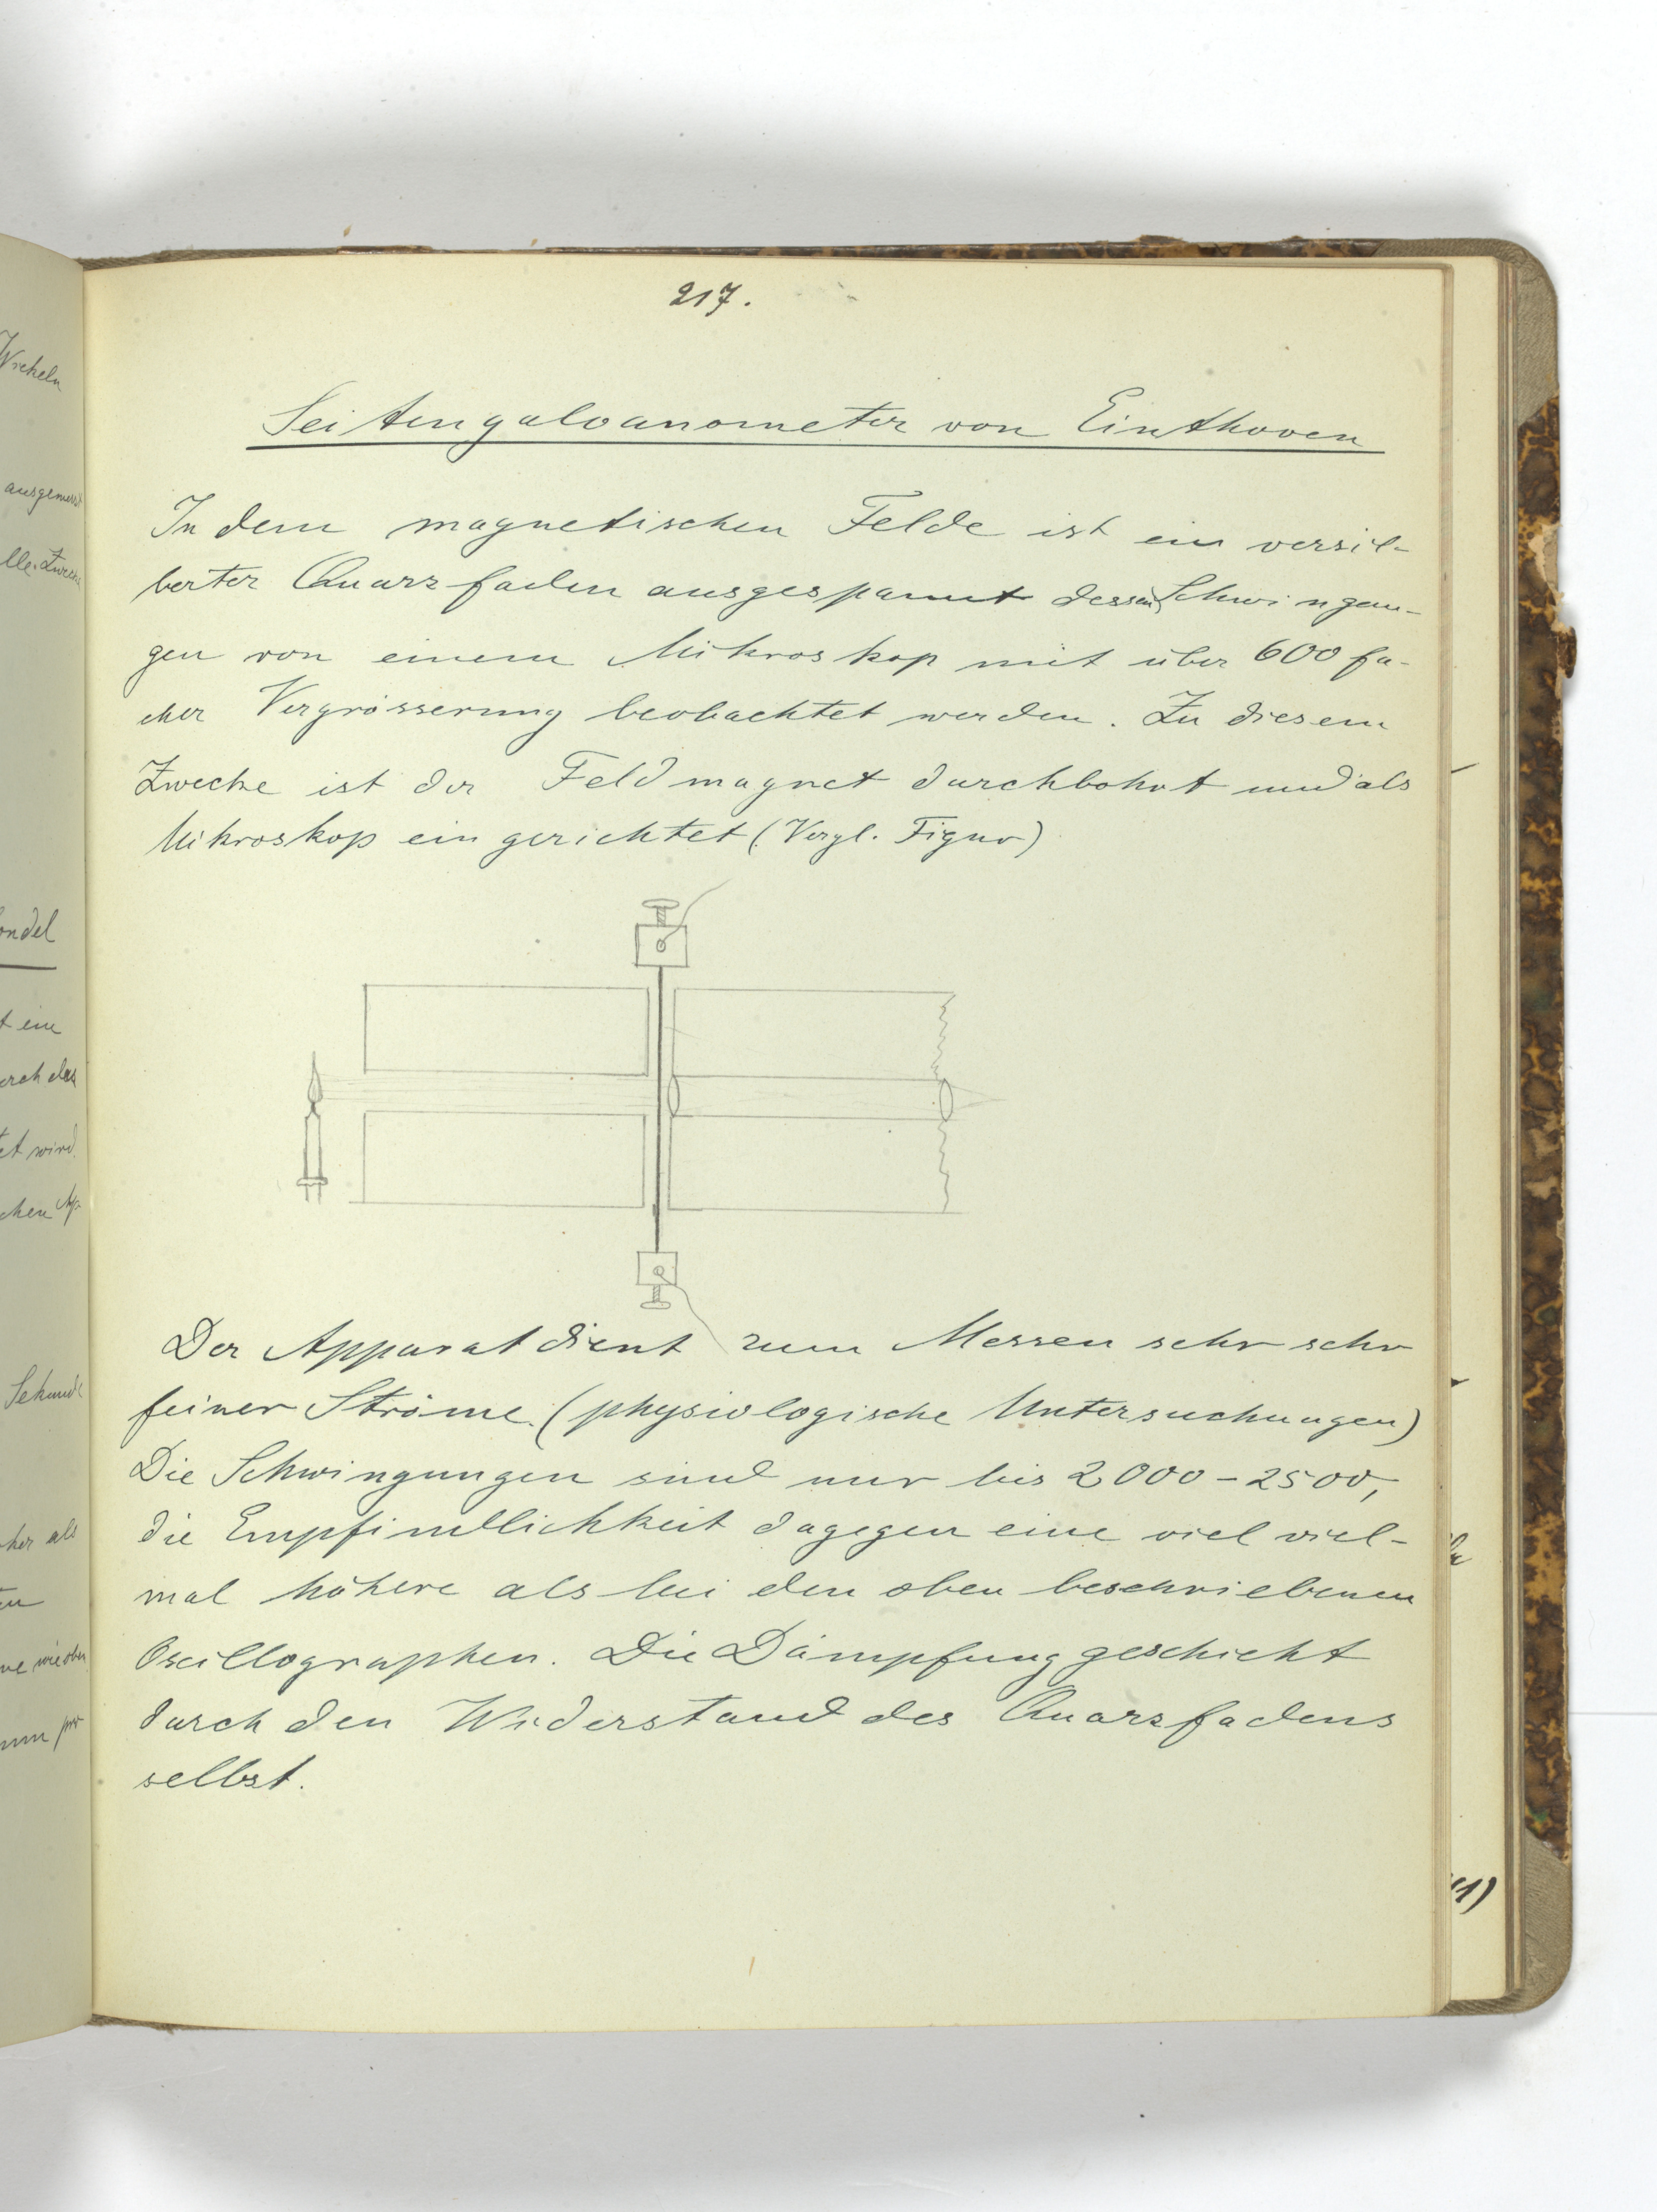 217.
Seitengalvanometer von Einthoven
In dem magnetischen Felde ist ein versil-
berter Quarzfaden ausgespannt dessen Schwingun-
gen von einem Mikroskop mit über 600 fa-
cher Vergrösserung beobachtet werden. Zu diesem
Zwecke ist der Feldmagnet durchbohrt und als
Mikroskop eingerichtet (Vergl. Figur)
Der Apparat dient zum Messen sehr sehr
feiner Ströme. (physiologische Untersuchungen)
Die Schwingungen sind nur bis 2000 - 2500,
die Empfindlichkeit dagegen eine viel viel-
mal höhere als bei den oben beschriebenen
Oscillographen. Die Dämpfung geschieht
durch den Widerstand des Quarzfadens
selbst.
Wickeln
ondel
t ein
urch das
et wird.
chen Ap-
Sekunde
her als
wie oben